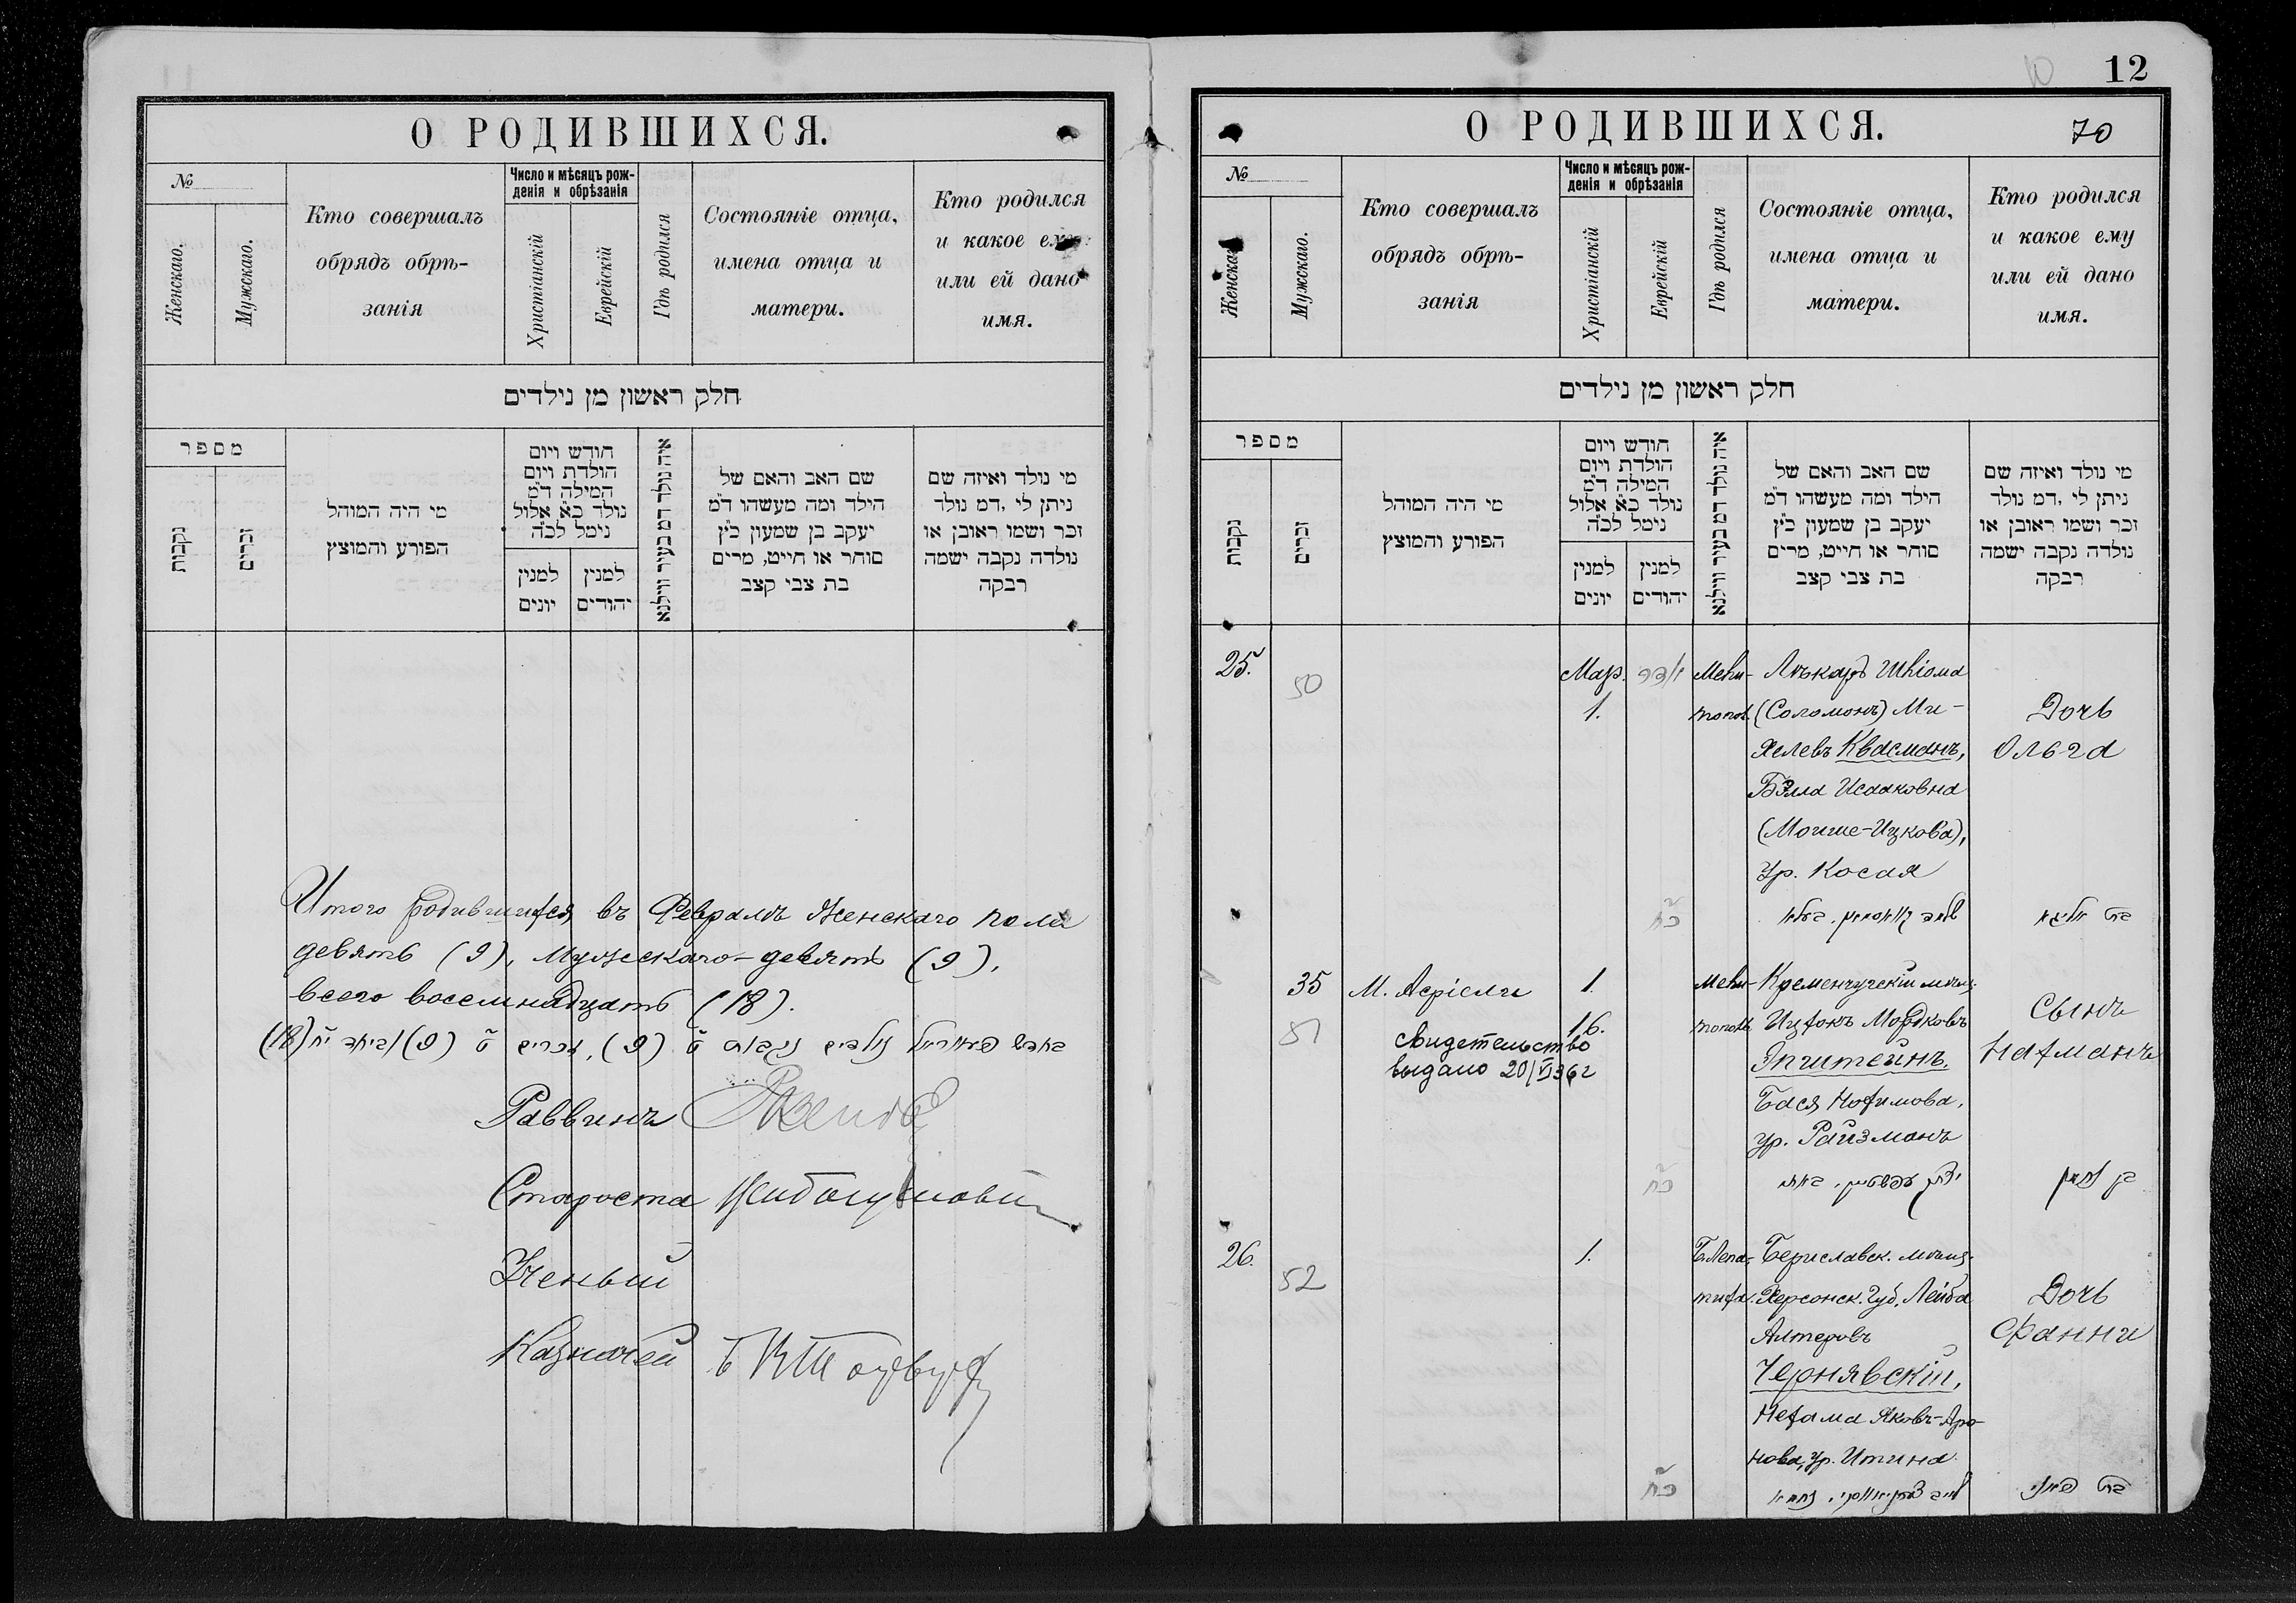 О РОДИВШИХСЯ.
№
Женскаго.
Мужскаго.
Кто совершалъ
обрядъ обрѣ-
занія
Число и мѣсяцъ рож-
денія и обрѣзанія
Христіанскій
Еврейскій
Гдѣ родился
Состояніе отца,
имена отца и
матери.
Кто родился
и какое ему
или ей дано
имя.
חלק ראשון מן נילדים
מספר
נקבות
זכרים
מי היה המוהל
הפורע והמוצץ
חודש ויום
הולדת ויום
המילה ד״מ
נולד כ״א אלול
נימל לכ״ה
למנין
יונים
למנין
יהודים
איה נולד דמ בעיר ווילנא
שם האב והאם של
הילד ומה מעשהו ד״מ
יעקב בן שמעון כ״ץ
סוחר או חייט, מרים
בת צבי קצב
מי נולד ואיזה שם
ניתן לי, דמ נולד
זכר ושמו ראובן או
נולדה נקבה ישמה
רבקה
Итого родившихся въ Февралѣ Женскаго пола
девять (9), Мужескаго - девять (9),
всего восемнадцать (18).
בחדש פעווראל נולדים נקבות ט׳ (9), זכרים ט׳ (9) וביחד י״ח (18)
Раввинъ
Староста
Ученый
Казначей
12
О РОДИВШИХСЯ.
70
№
Женскаго.
Мужскаго.
Кто совершалъ
обрядъ обрѣ-
занія
Число и мѣсяцъ рож-
денія и обрѣзанія
Христіанскій
Еврейскій
Гдѣ родился
Состояніе отца,
имена отца и
матери.
Кто родился
и какое ему
или ей дано
имя.
חלק ראשון מן נילדים
מספר
נקבות
זכרים
מי היה המוהל
הפורע והמוצץ
חודש ויום
הולדת ויום
המילה ד״מ
נולד כ״א אלול
נימל לכ״ה
למנין
יונים
למנין
יהודים
איה נולד דמ בעיר ווילנא
שם האב והאם של
הילד ומה מעשהו ד״מ
יעקב בן שמעון כ״ץ
סוחר או חייט, מרים
בת צבי קצב
מי נולד ואיזה שם
ניתן לי, דמ נולד
זכר ושמו ראובן או
נולדה נקבה ישמה
רבקה
25.
50
Мар.
1.
Мели-
тополь
Лѣкарь Шліома
(Соломонъ) Ми-
хелевъ Квасманъ,
Бэлла Исааковна
(Моише-Ицкова),
ур. Косая
Дочь
Ольга
כ״ח
בת אלגא
35
51
М. Асріели
1.
16.
свидетельство
выдано 20/VI 36 г
Мели-
тополь
Кременчугскій мѣщ.
Ицхокъ Мордковъ
Эпштейнъ.
Бася Нохимова,
ур. Райзманъ
Сынъ
Нахманъ
כ״ח
יצחק עפשטיין, באסי
בן נחמן
26.
52
1.
Б.Лепа-
тиха.
Бериславск. мѣщ.
Херсонск. Губ. Лейба
Алтеровъ
Чернявскій,
Нехама Яковъ-Аро-
нова, ур. Итина
Дочь
Фанни
כ״ח
ליב צערניאווסקי, נחמה
בת פאני